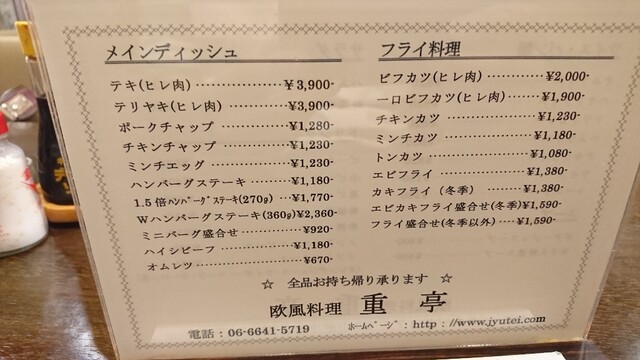 メインディッシュ
テキ(ヒレ肉) ‥‥‥‥‥‥‥¥3,900-
テリヤキ(ヒレ肉) ‥‥‥‥‥¥3,900-
ポークチャップ ‥‥‥‥‥‥¥1,280-
チキンチャップ ‥‥‥‥‥‥¥1,230-
ミンチエッグ ‥‥‥‥‥‥‥¥1,230-
ハンバーグステーキ ‥‥‥‥¥1,180-
1.5倍ﾊﾝﾊﾞｰｸﾞｽﾃｰｷ(270g) ‥¥1,770-
Wハンバーグステーキ(360g)¥2,360-
ミニバーグ盛合せ ‥‥‥‥‥¥920-
ハイシビーフ ‥‥‥‥‥‥‥¥1,180-
オムレツ ‥‥‥‥‥‥‥‥‥¥670-
フライ料理
ビフカツ(ヒレ肉) ‥‥‥‥‥¥2,000-
一口ビフカツ(ヒレ肉)‥‥‥¥1,900-
チキンカツ ‥‥‥‥‥‥‥‥¥1,230-
ミンチカツ ‥‥‥‥‥‥‥‥¥1,180-
トンカツ ‥‥‥‥‥‥‥‥‥¥1,080-
エビフライ ‥‥‥‥‥‥‥‥¥1,380-
カキフライ (冬季) ‥‥‥‥¥1,380-
エビカキフライ盛合せ(冬季)¥1,590-
フライ盛合せ(冬季以外)‥‥¥1,590-
☆ 全品お持ち帰り承ります ☆
欧風料理 重 亭
電話：06-6641-5719 ﾎｰﾑﾍﾟｰｼﾞ：http：//www.jyutei.com